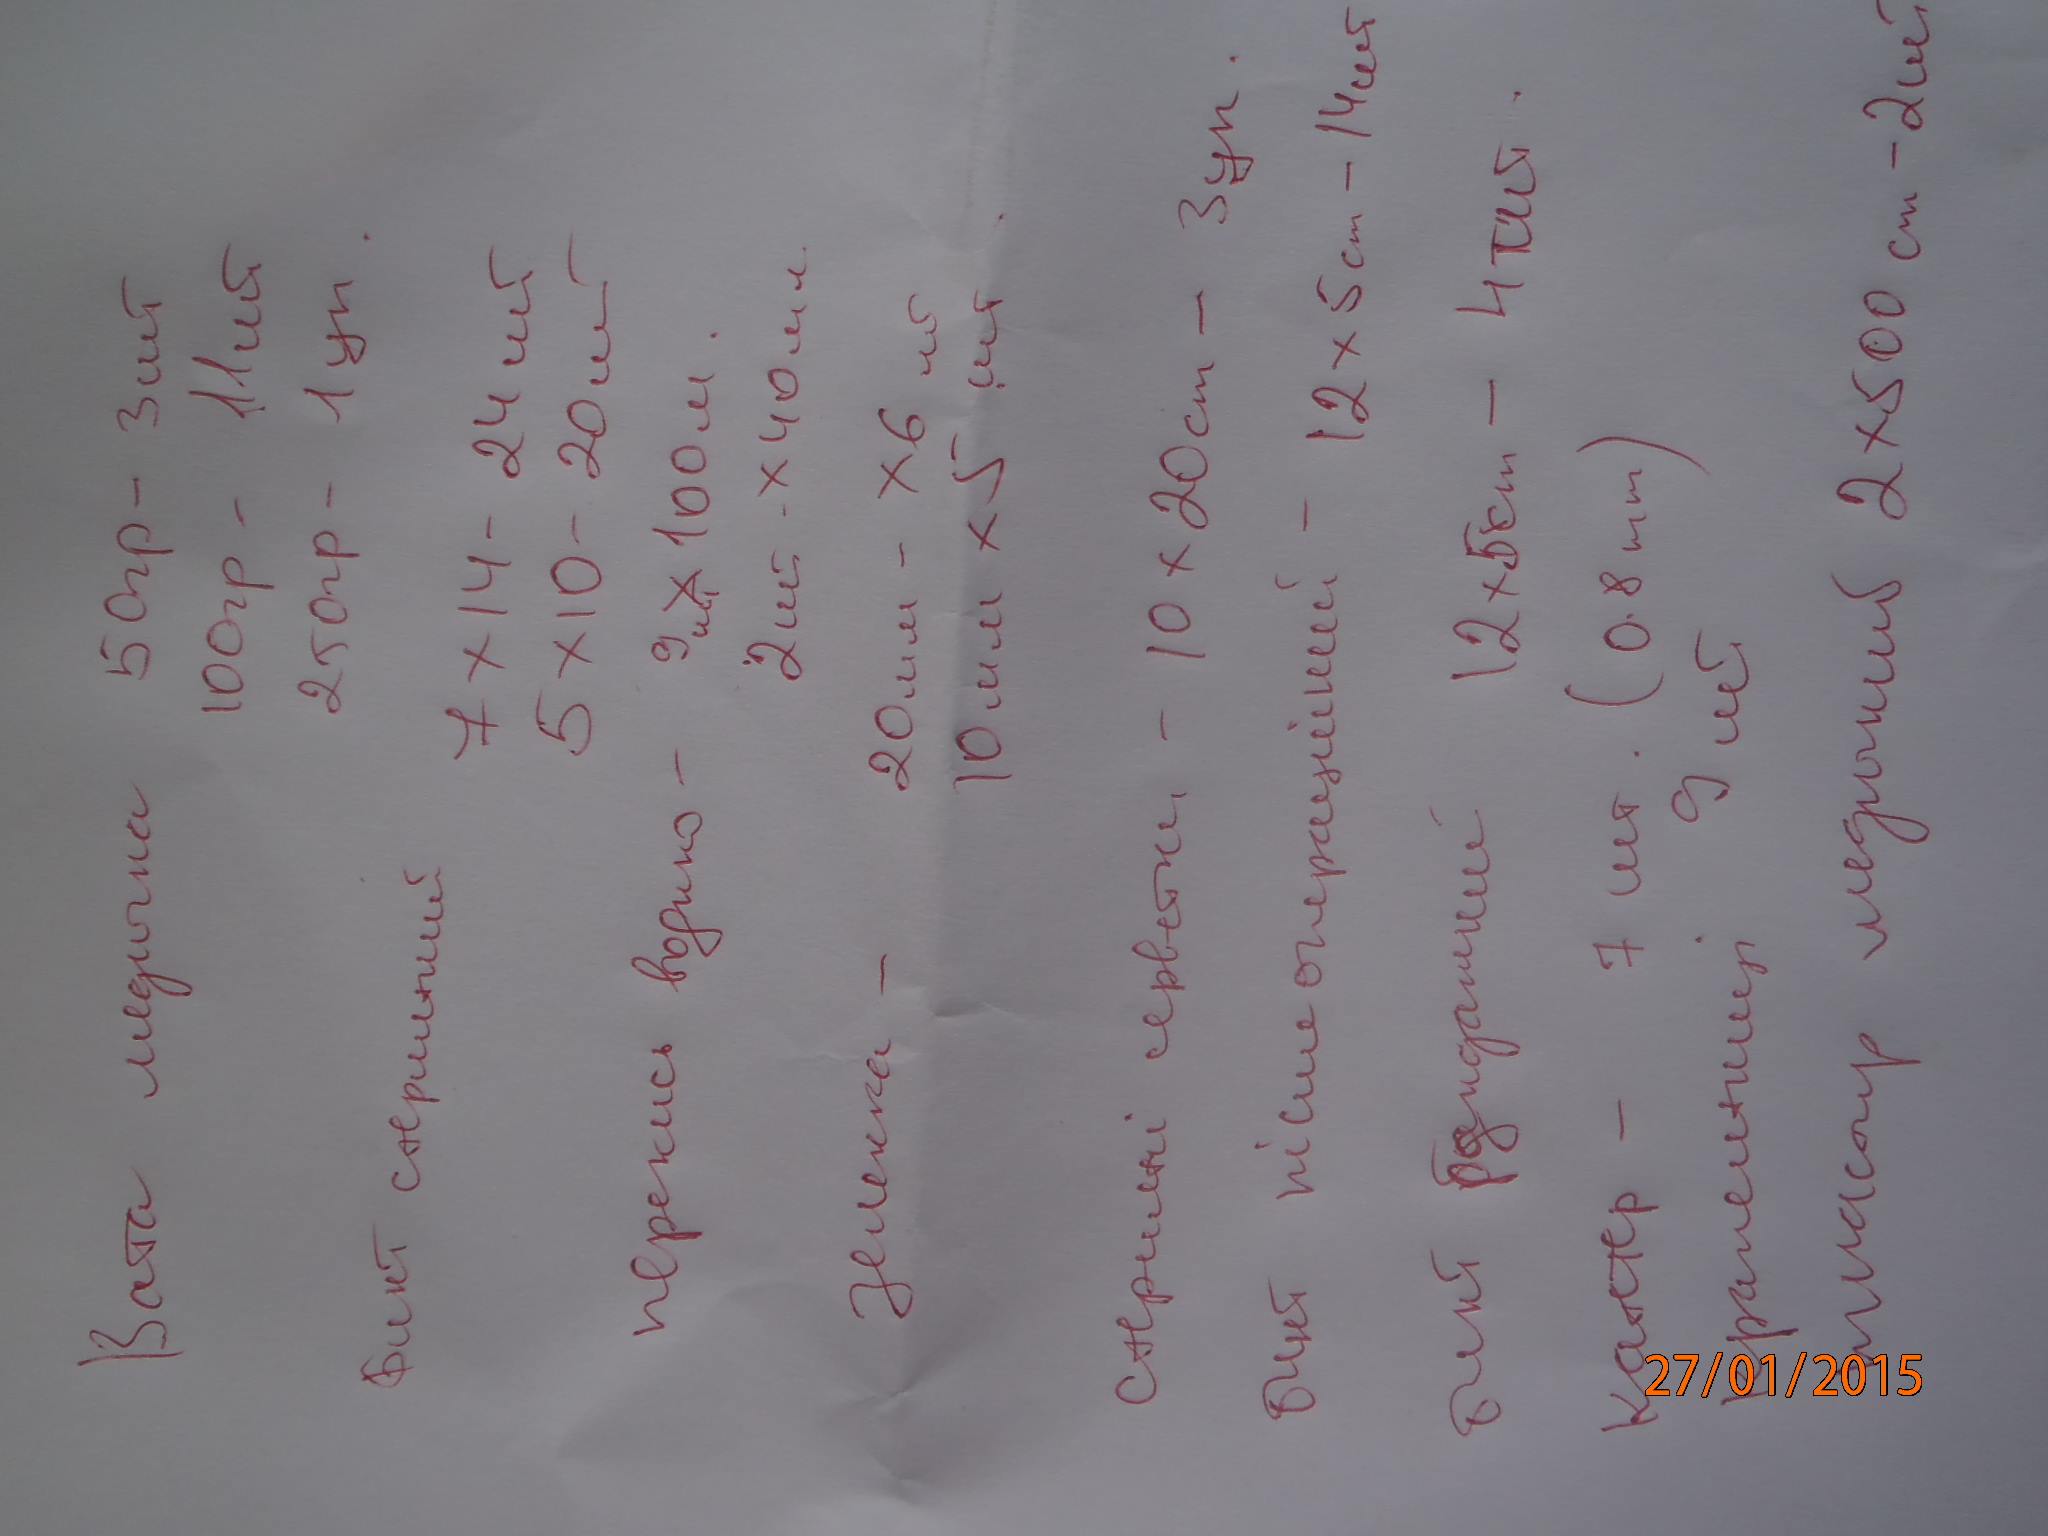 Вата медична 50гр - 3шт
100гр - 11шт
250гр - 1уп.
бинт стерильний
7 x 14 - 24шт
5 x 10 - 20шт
перекись водню - 9шт x 100мл.
2шт - x 40мл.
зеленка - 20мл - x6 шт
10мл x 5 шт.
стерильні серветки - 10 x 20cm - 3уп.
бинт післяопераційний - 12 x 5cm - 14шт
бинт 12x5cm - 4шт.
катетер - 7 шт. (0.8mm)
крапельниці 9 шт
пластир медичний 2x500 cm - 2шт
27/01/2015